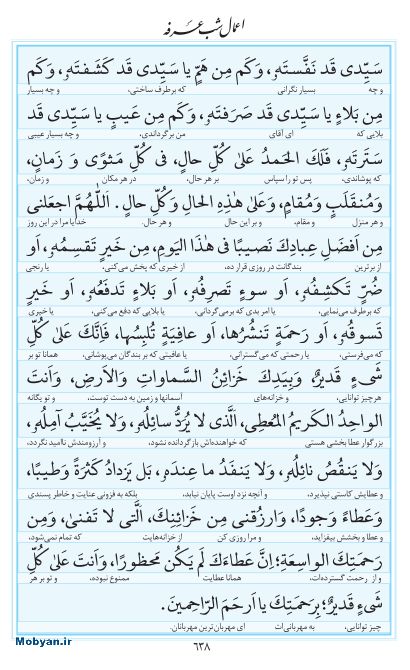 اعمال شب عرفه
سَيِّدى قَد نَفَّستَهُ، وَكَم مِن هَمٍّ يا سَيِّدى قَد كَشَفتَهُ، وَكَم
و چه بسیار نگرانی که برطرف ساختی، و چه بسیار
مِن بَلاءٍ يا سَيِّدى قَد صَرَفتَهُ، وَكَم مِن عَيبٍ يا سَيِّدى قَد
بلایی که ای آقای من برگرداندی، و چه بسیار عیبی
سَتَرتَهُ، فَلَكَ الحَمدُ عَلىٰ كُلِّ حالٍ، فى كُلِّ مَثوًى وَ زَمانٍ،
که پوشاندی، پس تو را سپاس بر هر حال، در هر مکان و زمان،
وَمُنقَلَبٍ وَمُقامٍ، وَعَلىٰ هٰذِهِ الحالِ وَكُلِّ حالٍ . اَللّٰهُمَّ اجعَلنى
و هر منزل و مقام، و بر این حال و هر حال. خدایا مرا در این روز
مِن اَفضَلِ عِبادِكَ نَصيبًا فى هٰذَا اليَومِ، مِن خَيرٍ تَقسِمُهُ، اَو
از برترین بندگانت در روزی قرار ده، از خیری که پخش می‌کنی، یا رنجی
ضُرٍّ تَكشِفُهُ، اَو سوءٍ تَصرِفُهُ، اَو بَلاءٍ تَدفَعُهُ، اَو خَيرٍ
که برطرف می‌نمایی، یا امر بدی که برمی‌گردانی، یا بلایی که دفع می‌کنی، یا خیری
تَسوقُهُ، اَو رَحمَةٍ تَنشُرُها، اَو عافِيَةٍ تُلبِسُها، فَاِنَّكَ عَلىٰ كُلِّ
که می‌فرستی، یا رحمتی که می‌گسترانی، یا عافیتی که بر بندگان می‌پوشانی، همانا تو بر
شَىءٍ قَديرٌ، وَبِيَدِكَ خَزائِنُ السَّماواتِ وَالاَرضِ، وَاَنتَ
هرچیز توانایی، و خزانه‌های آسمانها و زمین به دست توست، و تو یگانه
الواحِدُ الكَريمُ المُعطِى، اَلَّذى لا يُرَدُّ سائِلُهُ، وَلا يُخَيَّبُ آمِلُهُ،
بزرگوار عطابخشی هستی که خواهنده‌اش بازگردانده نشود، و آرزومندش ناامید نگردد،
وَلا يَنقُصُ نائِلُهُ، وَلا يَنفَدُ ما عِندَهُ، بَل يَزدادُ كَثرَةً وَطيبًا،
و عطایش کاستی نپذیرد، و آنچه نزد اوست پایان نیابد، بلکه به فزونی عنایت و خاطر پسندی
وَعَطاءً وَجودًا، وَارزُقنى مِن خَزائِنِكَ، الَّتى لا تَفنىٰ، وَمِن
و عطا و بخشش بیفزاید، و مرا روزی کن از خزانه‌هایت که تمام نمی‌شود،
رَحمَتِكَ الواسِعَةِ؛ اِنَّ عَطاءَكَ لَم يَكُن مَحظورًا، وَاَنتَ عَلىٰ كُلِّ
و از رحمت گسترده‌ات، همانا عطایت ممنوع نبوده، و تو بر هر
شَىءٍ قَديرٌ؛ بِرَحمَتِكَ يا اَرحَمَ الرّاحِمينَ.
چیز توانایی، به مهربانی‌ات ای مهربان‌ترین مهربانان.
۶۳۸
Mobyan.ir